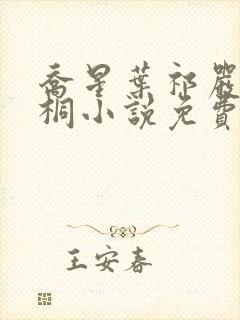 喬星葉祁嚴
桐小說免費
王安春